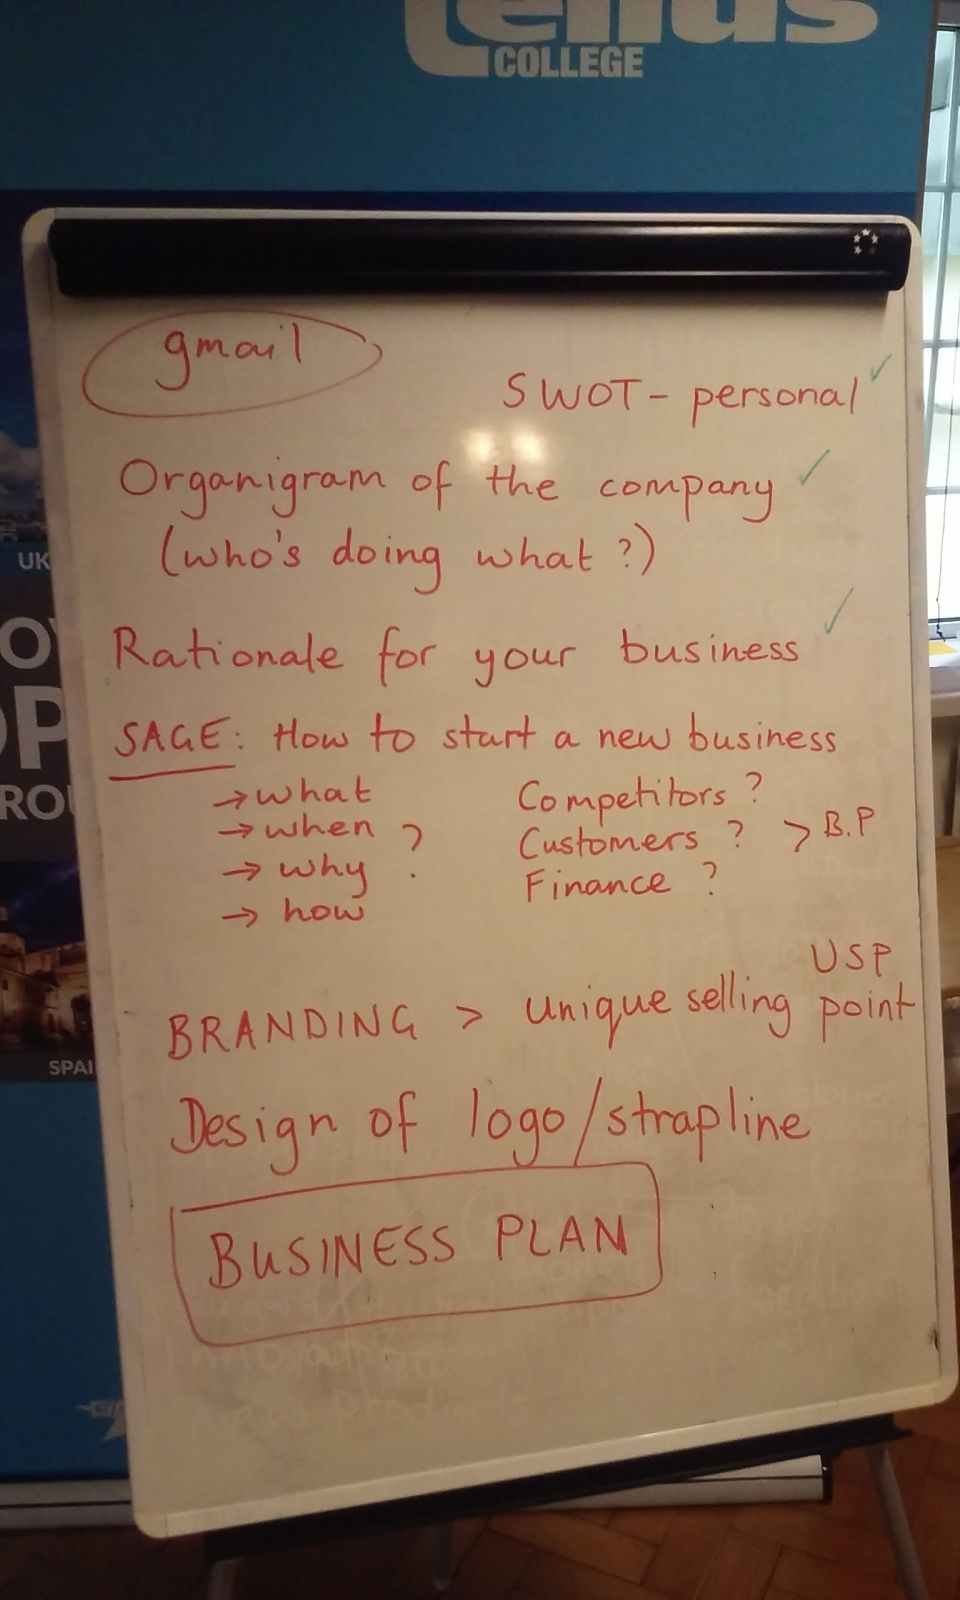 COLLEGE
gmail
SWOT - personal ✓
Organigram of the company ✓
(who's doing what?)
Rationale for your business ✓
SAGE: How to start a new business
→ what
→ when ?
→ why
→ how
Competitors ?
Customers ? > B.P
Finance ?
USP
BRANDING > unique selling point
Design of logo/strapline
BUSINESS PLAN
UK
SPAI